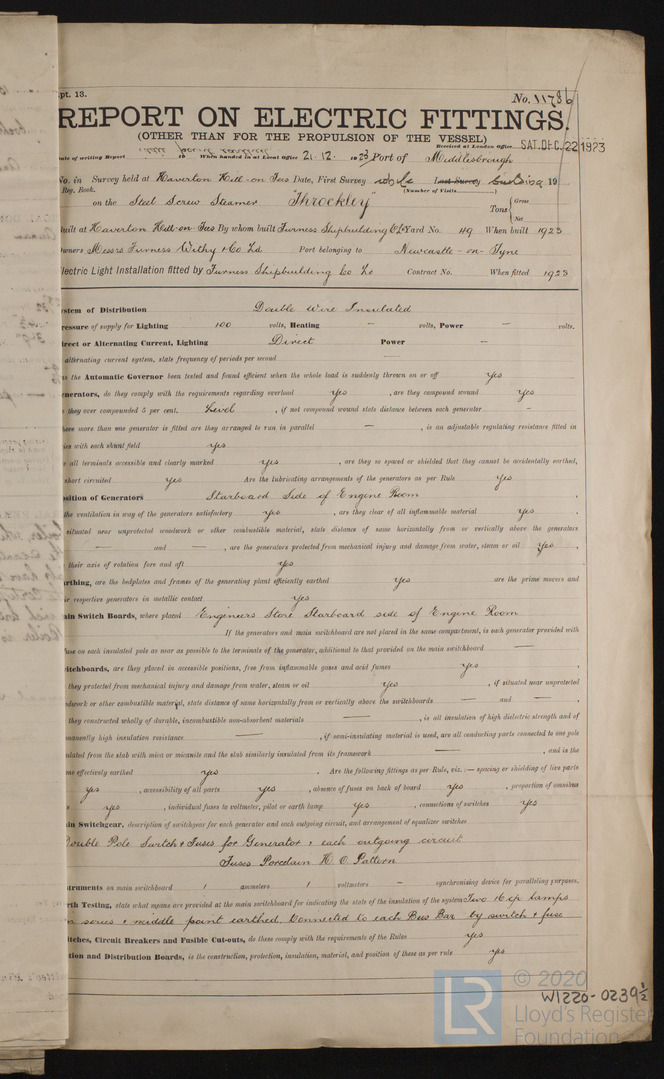 pt. 13.
No. 11786
REPORT ON ELECTRIC FITTINGS.
(OTHER THAN FOR THE PROPULSION OF THE VESSEL)
Received at London Office SAT. DEC. 22 1923
ate of writing Report 19 When handed in at Local Office 21.12. 1923 Port of Middlesbrough
No. in Survey held at Haverton Hill-on-Tees Date, First Survey while Last Survey building 19
Reg. Book. (Number of Visits)
on the Steel Screw Steamer "Throckley" Tons { Gross
Net
uilt at Haverton Hill-on-Tees By whom built Furness Shipbuilding Co Ld Yard No. 49 When built 1923
wners Messrs Furness Withy & Co Ld Port belonging to Newcastle-on-Tyne
lectric Light Installation fitted by Furness Shipbuilding Co Ld Contract No. When fitted 1923
ystem of Distribution Double Wire Insulated
ressure of supply for Lighting 100 volts, Heating - volts, Power - volts.
irect or Alternating Current, Lighting Direct Power -
alternating current system, state frequency of periods per second -
s the Automatic Governor been tested and found efficient when the whole load is suddenly thrown on or off yes
enerators, do they comply with the requirements regarding overload yes , are they compound wound yes
they over compounded 5 per cent. Level , if not compound wound state distance between each generator -
here more than one generator is fitted are they arranged to run in parallel - , is an adjustable regulating resistance fitted in
ies with each shunt field yes
e all terminals accessible and clearly marked yes , are they so spaced or shielded that they cannot be accidentally earthed,
short circuited yes Are the lubricating arrangements of the generators as per Rule yes
osition of Generators Starboard Side of Engine Room
the ventilation in way of the generators satisfactory yes , are they clear of all inflammable material yes ,
situated near unprotected woodwork or other combustible material, state distance of same horizontally from or vertically above the generators
- and - , are the generators protected from mechanical injury and damage from water, steam or oil yes ,
their axis of rotation fore and aft yes
arthing, are the bedplates and frames of the generating plant efficiently earthed yes are the prime movers and
ir respective generators in metallic contact yes
ain Switch Boards, where placed Engineers Store Starboard side of Engine Room
If the generators and main switchboard are not placed in the same compartment, is each generator provided with
fuse on each insulated pole as near as possible to the terminals of the generator, additional to that provided on the main switchboard -
witchboards, are they placed in accessible positions, free from inflammable gases and acid fumes yes ,
they protected from mechanical injury and damage from water, steam or oil yes , if situated near unprotected
odwork or other combustible material, state distance of same horizontally from or vertically above the switchboards - and - ,
they constructed wholly of durable, incombustible non-absorbent materials - , is all insulation of high dielectric strength and of
manently high insulation resistance - , if semi-insulating material is used, are all conducting parts connected to one pole
ulated from the slab with mica or micanite and the slab similarly insulated from its framework - , and is the
me effectively earthed yes . Are the following fittings as per Rule, viz.:— spacing or shielding of live parts
yes , accessibility of all parts yes , absence of fuses on back of board yes , proportion of omnibus
s yes , individual fuses to voltmeter, pilot or earth lamp yes , connections of switches yes
ain Switchgear, description of switchgear for each generator and each outgoing circuit, and arrangement of equalizer switches
Double Pole Switch & Fuses for Generator & each outgoing circuit
Fuses Porcelain H.O. Pattern
struments on main switchboard 1 ammeters 1 voltmeters - synchronising device for paralleling purposes.
rth Testing, state what means are provided at the main switchboard for indicating the state of the insulation of the system Two 16 cp lamps
in series & middle point earthed. Connected to each Bus Bar by switch & fuse
itches, Circuit Breakers and Fusible Cut-outs, do these comply with the requirements of the Rules yes
tion and Distribution Boards, is the construction, protection, insulation, material, and position of these as per rule yes
© 2020
W1220-0239 1/2
LR Lloyd's Register
Foundation